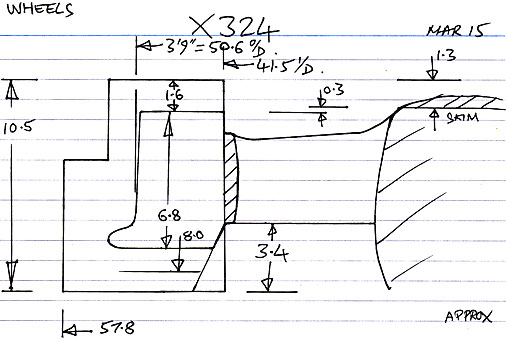 WHEELS
X324
MAR 15
3'9" = 50.6 O/D.
41.5 I/D.
1.3
1.6
0.3
10.5
SKIM
6.8
8.0
3.4
57.8
APPROX